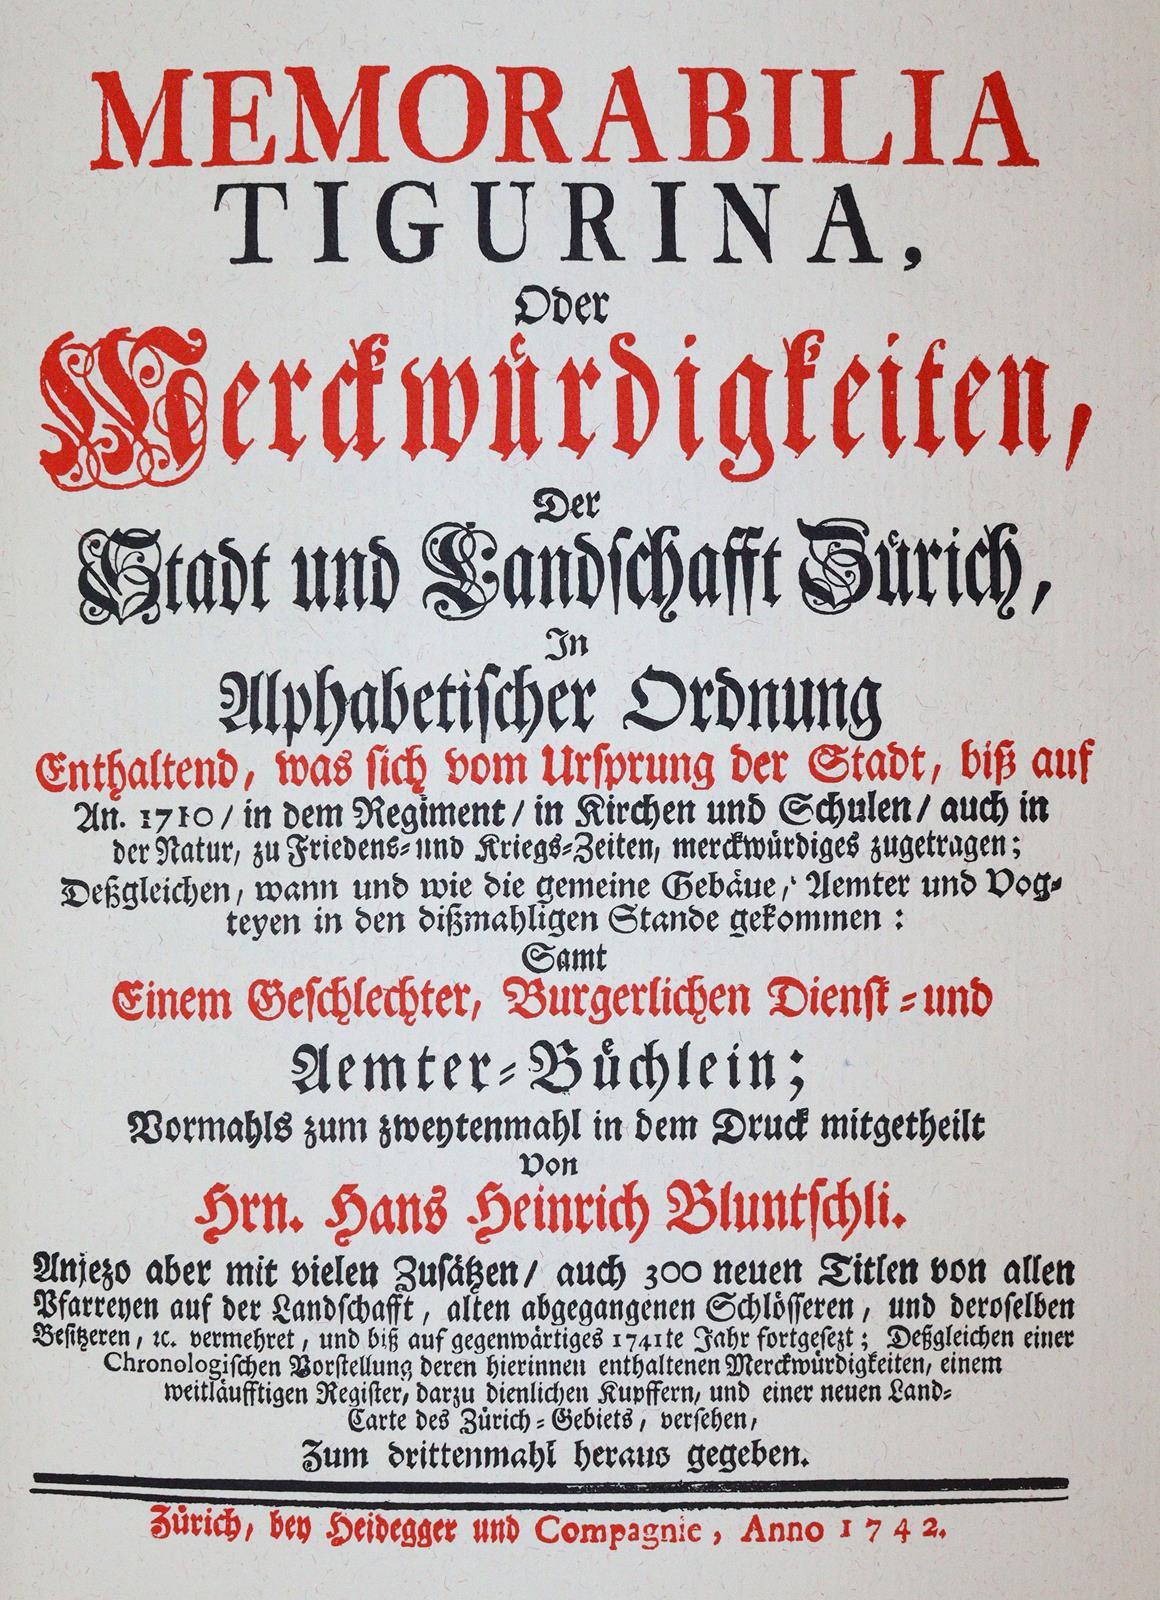 MEMORABILIA
TIGURINA,
Oder
Merckwürdigkeiten,
Der
Stadt und Landschafft Zürich,
In
Alphabetischer Ordnung
Enthaltend, was sich vom Ursprung der Stadt, biß auf
An. 1710 / in dem Regiment / in Kirchen und Schulen / auch in
der Natur, zu Friedens- und Kriegs-Zeiten, merckwürdiges zugetragen;
Deßgleichen, wann und wie die gemeine Gebäue, Aemter und Vog-
teyen in den dißmahligen Stande gekommen:
Samt
Einem Geschlechter, Burgerlichen Dienst- und
Aemter-Büchlein;
Vormahls zum zweytenmahl in dem Druck mitgetheilt
von
Hrn. Hans Heinrich Bluntschli.
Anjezo aber mit vielen Zusätzen / auch 300 neuen Titlen von allen
Pfarreyen auf der Landschafft, alten abgegangenen Schlösseren, und deroselben
Besitzeren, ꝛc. vermehret, und biß auf gegenwärtiges 1741te Jahr fortgesezt; Deßgleichen einer
Chronologischen Vorstellung deren hierinnen enthaltenen Merckwürdigkeiten, einem
weitläufftigen Register, darzu dienlichen Kupffern, und einer neuen Land-
Carte des Zürich-Gebiets, versehen,
Zum drittenmahl heraus gegeben.
Zürich, bey Heidegger und Compagnie, Anno 1742.